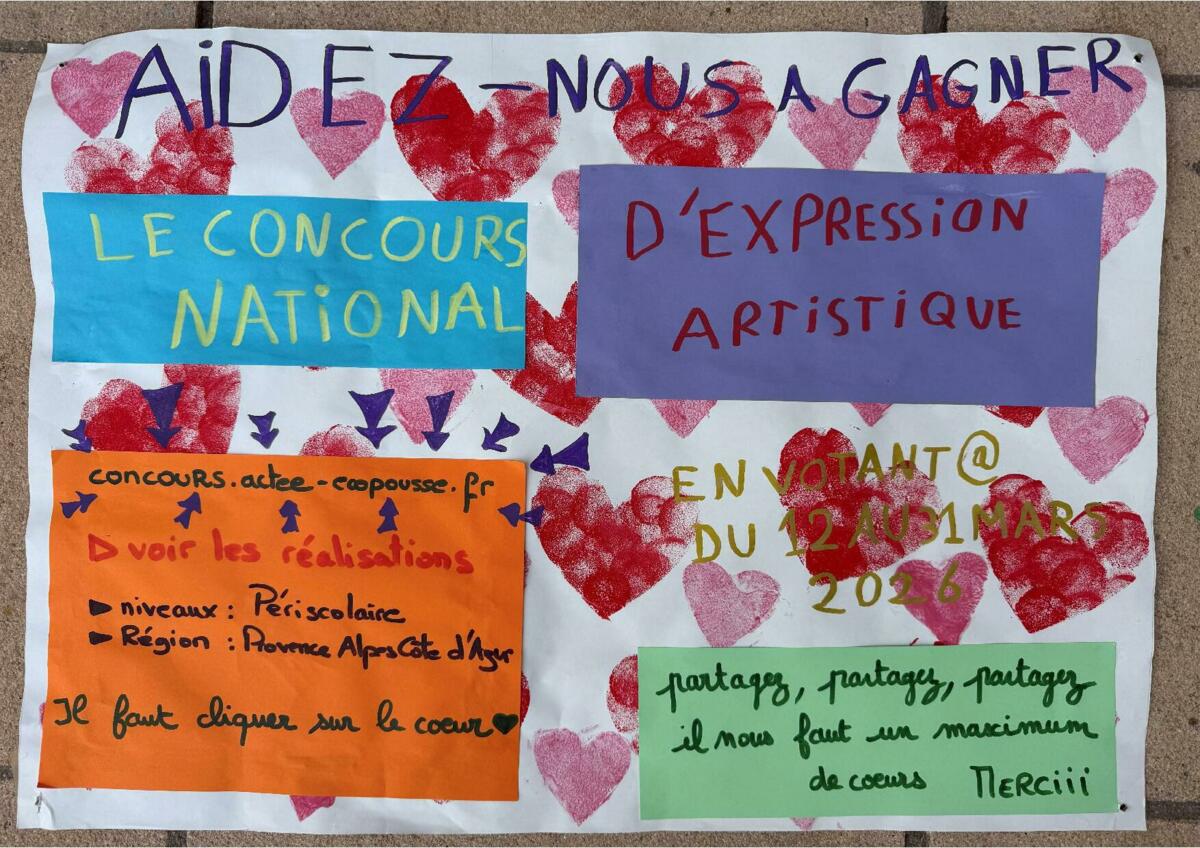 AiDEZ-NOUS A GAGNER
LE CONCOURS
NATiONAL
D'EXPRESSiON
ARTiSTiQUE
concours.actee-ecopousse.fr
voir les réalisations
niveaux : Périscolaire
Région : Provence Alpes Côte d'Azur
Il faut cliquer sur le coeur
EN VOTANT@
DU 12 AU 31 MARS
2026
partagez, partagez, partagez
il nous faut un maximum
de coeurs MERCiii